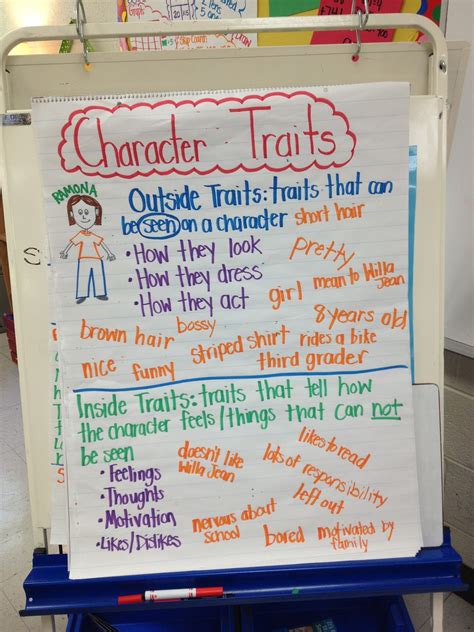 Character Traits
RAMONA
Outside Traits: traits that can
be seen on a character
short hair
• How they look
• How they dress
• How they act
pretty
girl
mean to Willa
Jean
8 years old
brown hair
bossy
striped shirt
rides a bike
nice
funny
third grader
Inside Traits: traits that tell how
the character feels/things that can not
be seen
• Feelings
• Thoughts
• Motivation
• Likes/Dislikes
doesn't like
Willa Jean
likes to read
lots of responsibility
left out
nervous about
school
bored
motivated by
family